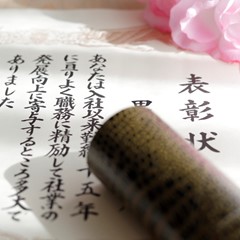 表彰状
あなたは入社以来勤続十五年
に亘りよく職務に精励して社業の
発展向上に寄与するところ多大で
ありました